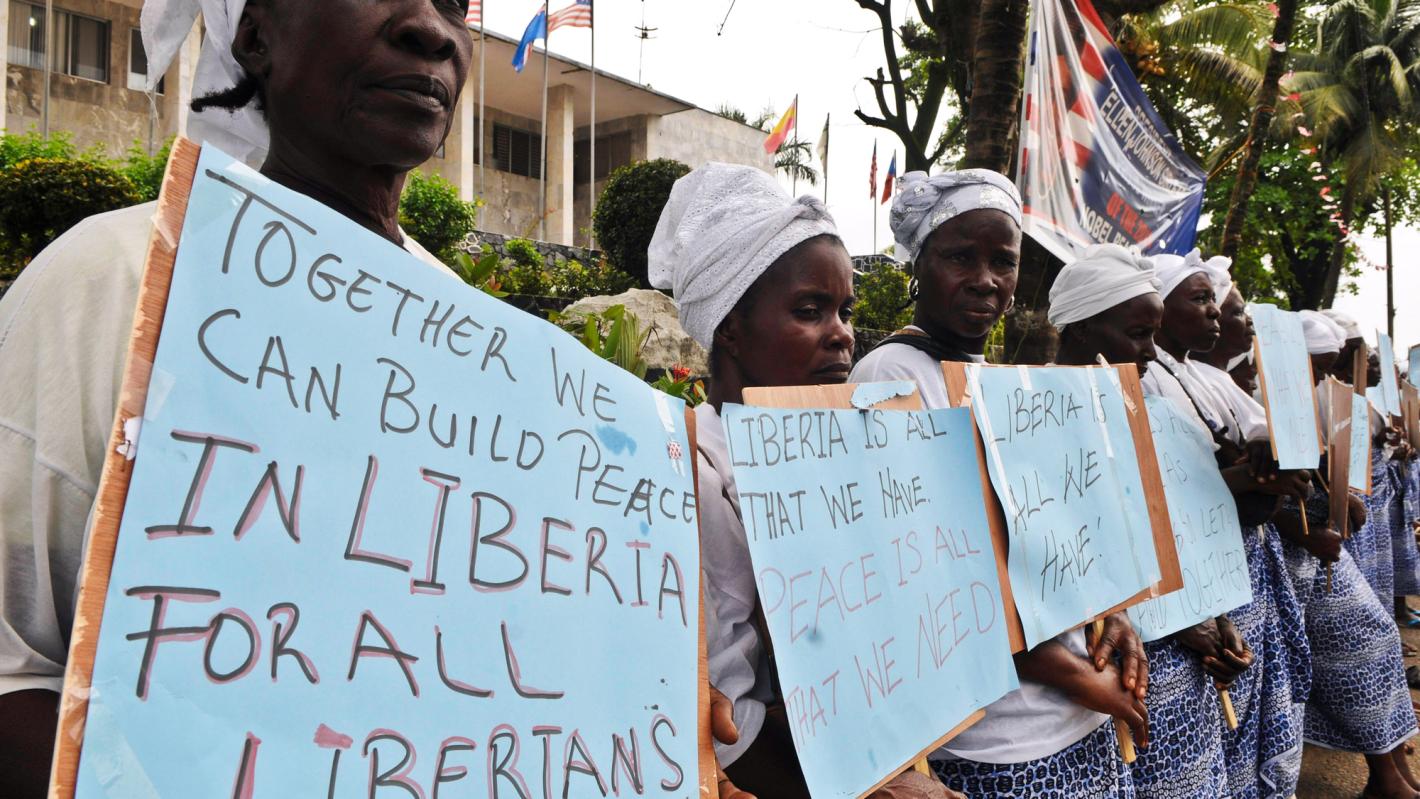 TOGETHER WE
CAN BUILD PEACE
IN LIBERIA
FOR ALL
LIBERIANS
LIBERIA IS ALL
THAT WE HAVE.
PEACE IS ALL
THAT WE NEED
LIBERIA IS
ALL WE
HAVE!
AS
LET
AND TOGETHER
ELLEN JOHNSON
OF THE
NOBEL